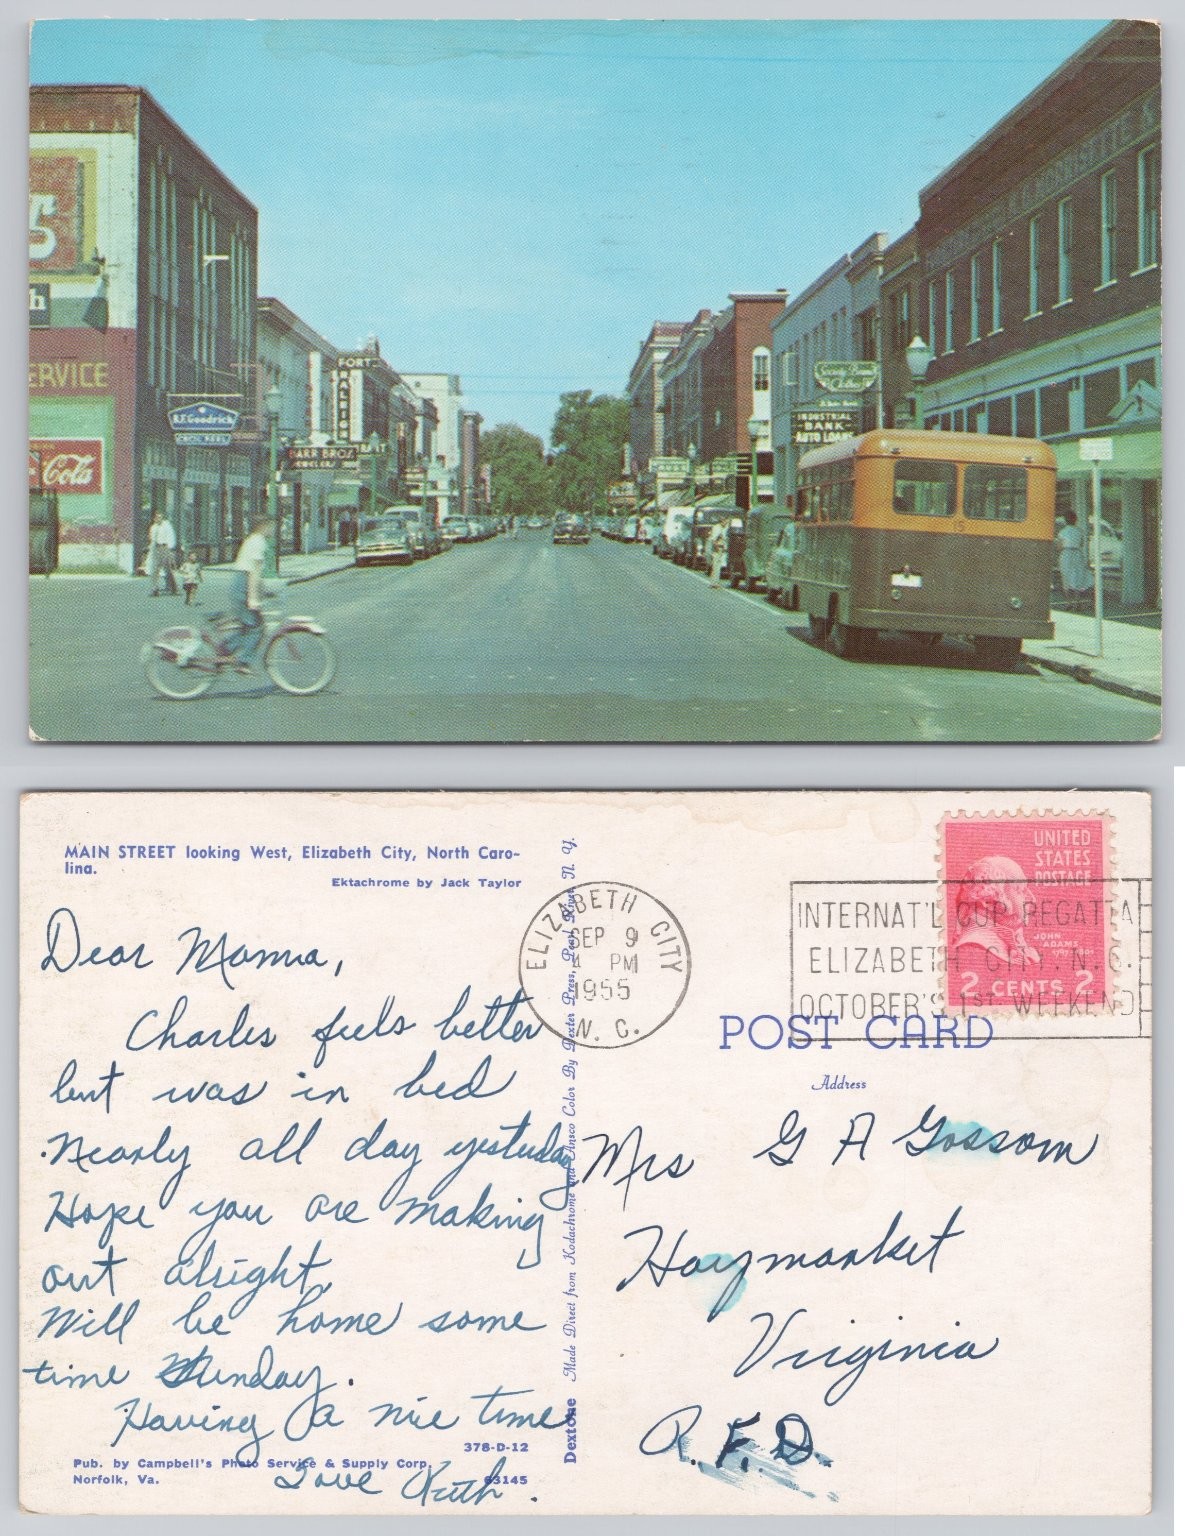 S
h
ERVICE
Coca-Cola
B.F. Goodrich
FORT
RALEIGH
BARR BROS.
JEWELERS
Society Brand
Clothes
INDUSTRIAL
BANK
AUTO LOANS
15
MAIN STREET looking West, Elizabeth City, North Caro-
lina.
Ektachrome by Jack Taylor
Dear Mamma,
Charles feels better
but was in bed
Nearly all day yesterday
Hope you are making
out alright.
Will be home some
time Sunday.
Having a nice time
Love Ruth.
378-D-12
Pub. by Campbell's Photo Service & Supply Corp.
Norfolk, Va.
63145
Dextone Made Direct from Kodachrome and Ansco Color By Dexter Press, Pearl River, N. Y.
ELIZABETH CITY
SEP 9
PM
1955
N. C.
INTERNAT'L CUP REGATTA
ELIZABETH CITY, N.C.
OCTOBER'S 1st WEEKEND
UNITED
STATES
POSTAGE
JOHN
ADAMS
2 CENTS 2
POST CARD
Address
Mrs G A Gossom
Haymarket
Virginia
R.F.D.